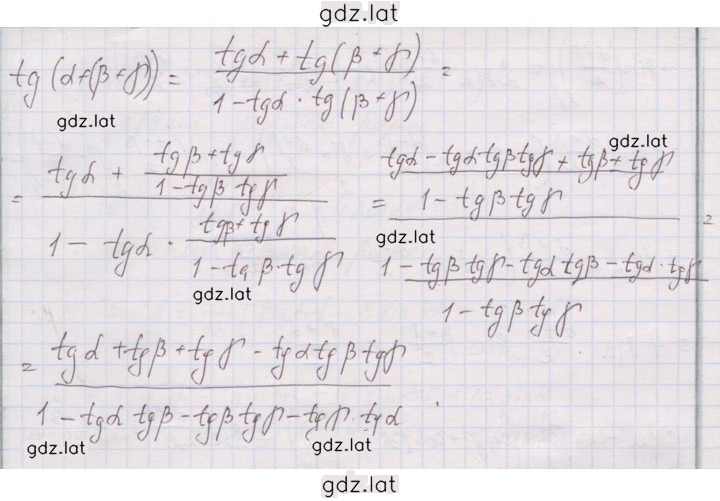 gdz.lat
tg(α+(β+γ)) = (tgα + tg(β+γ)) / (1 - tgα · tg(β+γ)) =
gdz.lat
gdz.lat
= (tgα + (tgβ + tgγ) / (1 - tgβ tgγ)) / (1 - tgα · (tgβ + tgγ) / (1 - tgβ · tgγ)) = ((tgα - tgα tgβ tgγ + tgβ + tgγ) / (1 - tgβ tgγ)) / ((1 - tgβ tgγ - tgα tgβ - tgα · tgγ) / (1 - tgβ tgγ)) =
gdz.lat
gdz.lat
= (tgα + tgβ + tgγ - tgα tgβ tgγ) / (1 - tgα tgβ - tgβ tgγ - tgγ · tgα).
gdz.lat
gdz.lat
gdz.lat